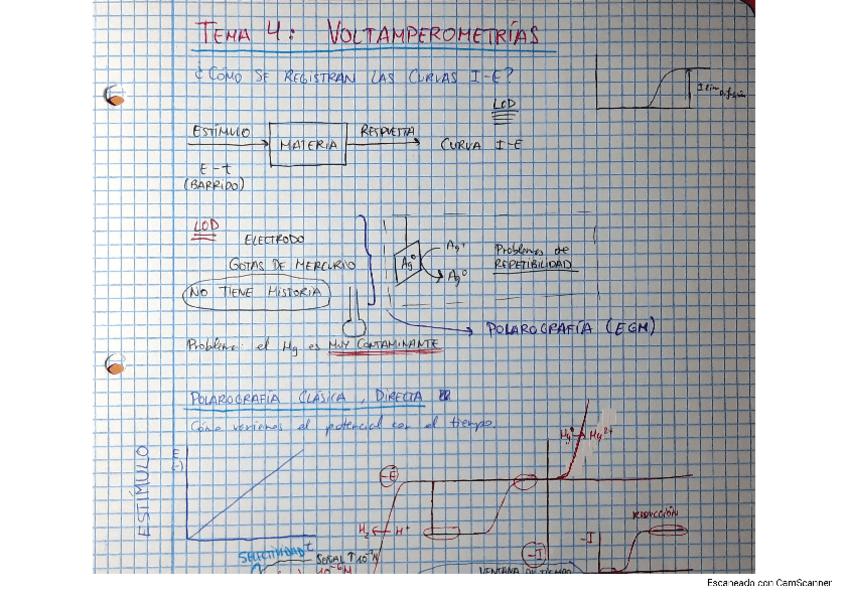 TEMA 4: VOLTAMPEROMETRÍAS
¿CÓMO SE REGISTRAN LAS CURVAS I-E?
I lim difusión
LOD
ESTÍMULO
MATERIA
RESPUESTA
CURVA I-E
E-t
(BARRIDO)
LOD
ELECTRODO
GOTAS DE MERCURIO
NO TIENE HISTORIA
Ag⁰
Ag⁺
Ag⁰
Problemas de
REPETIBILIDAD
POLAROGRAFÍA (EGM)
Problema: el Hg es MUY CONTAMINANTE
POLAROGRAFÍA CLÁSICA, DIRECTA
Cómo variamos el potencial con el tiempo.
ESTÍMULO
E
(-)
Hg⁰ → Hg²⁺
-E
H₂ ← H⁺
-I
REDUCCIÓN
-I
SELECTIVIDAD
SEÑAL ↑
VENTANA DE TIEMPO
Escaneado con CamScanner